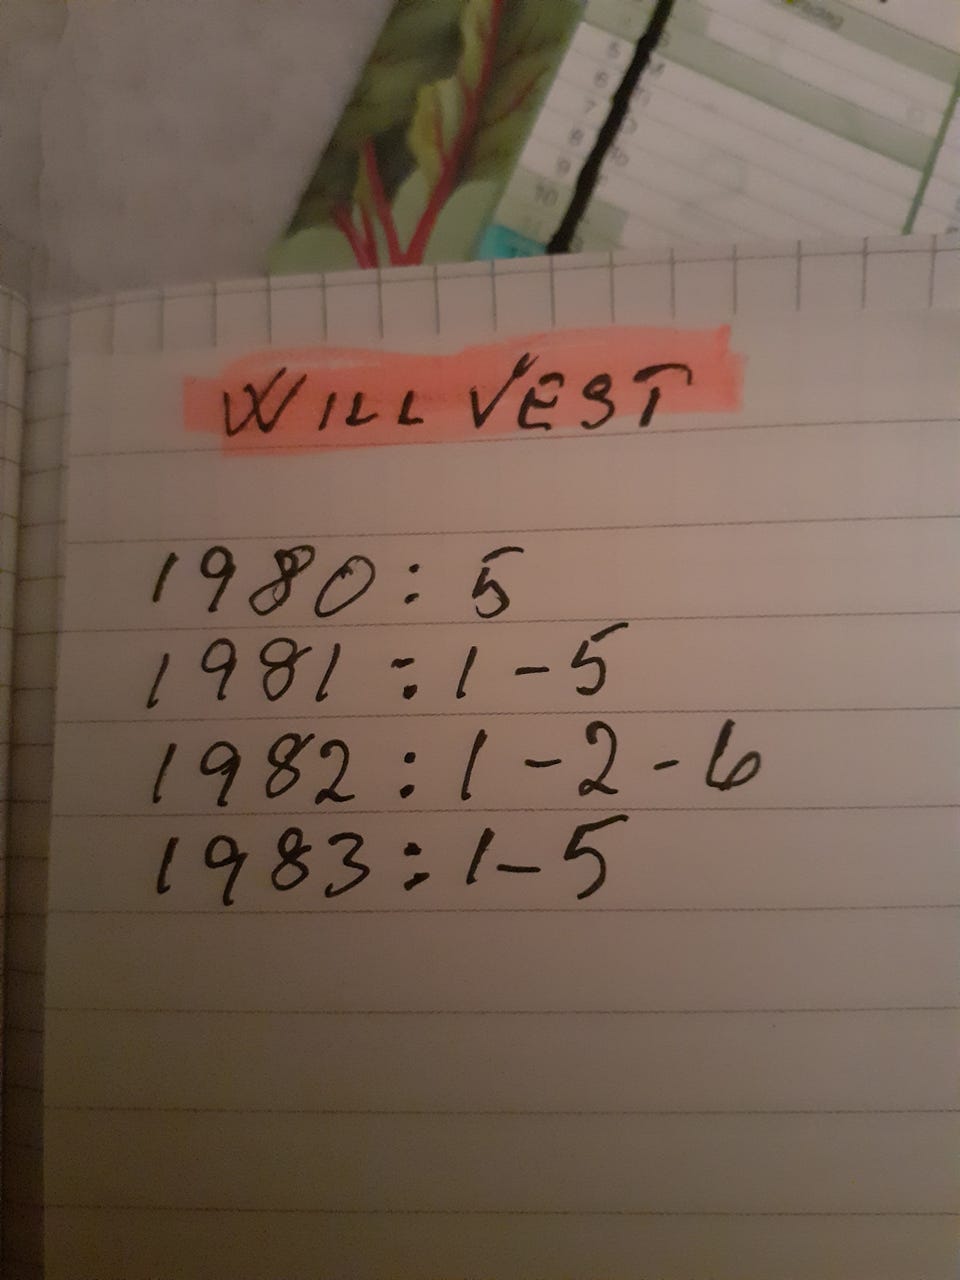 5
6
7
8
9
10
WILL VEST
1980: 5
1981: 1-5
1982: 1-2-6
1983: 1-5